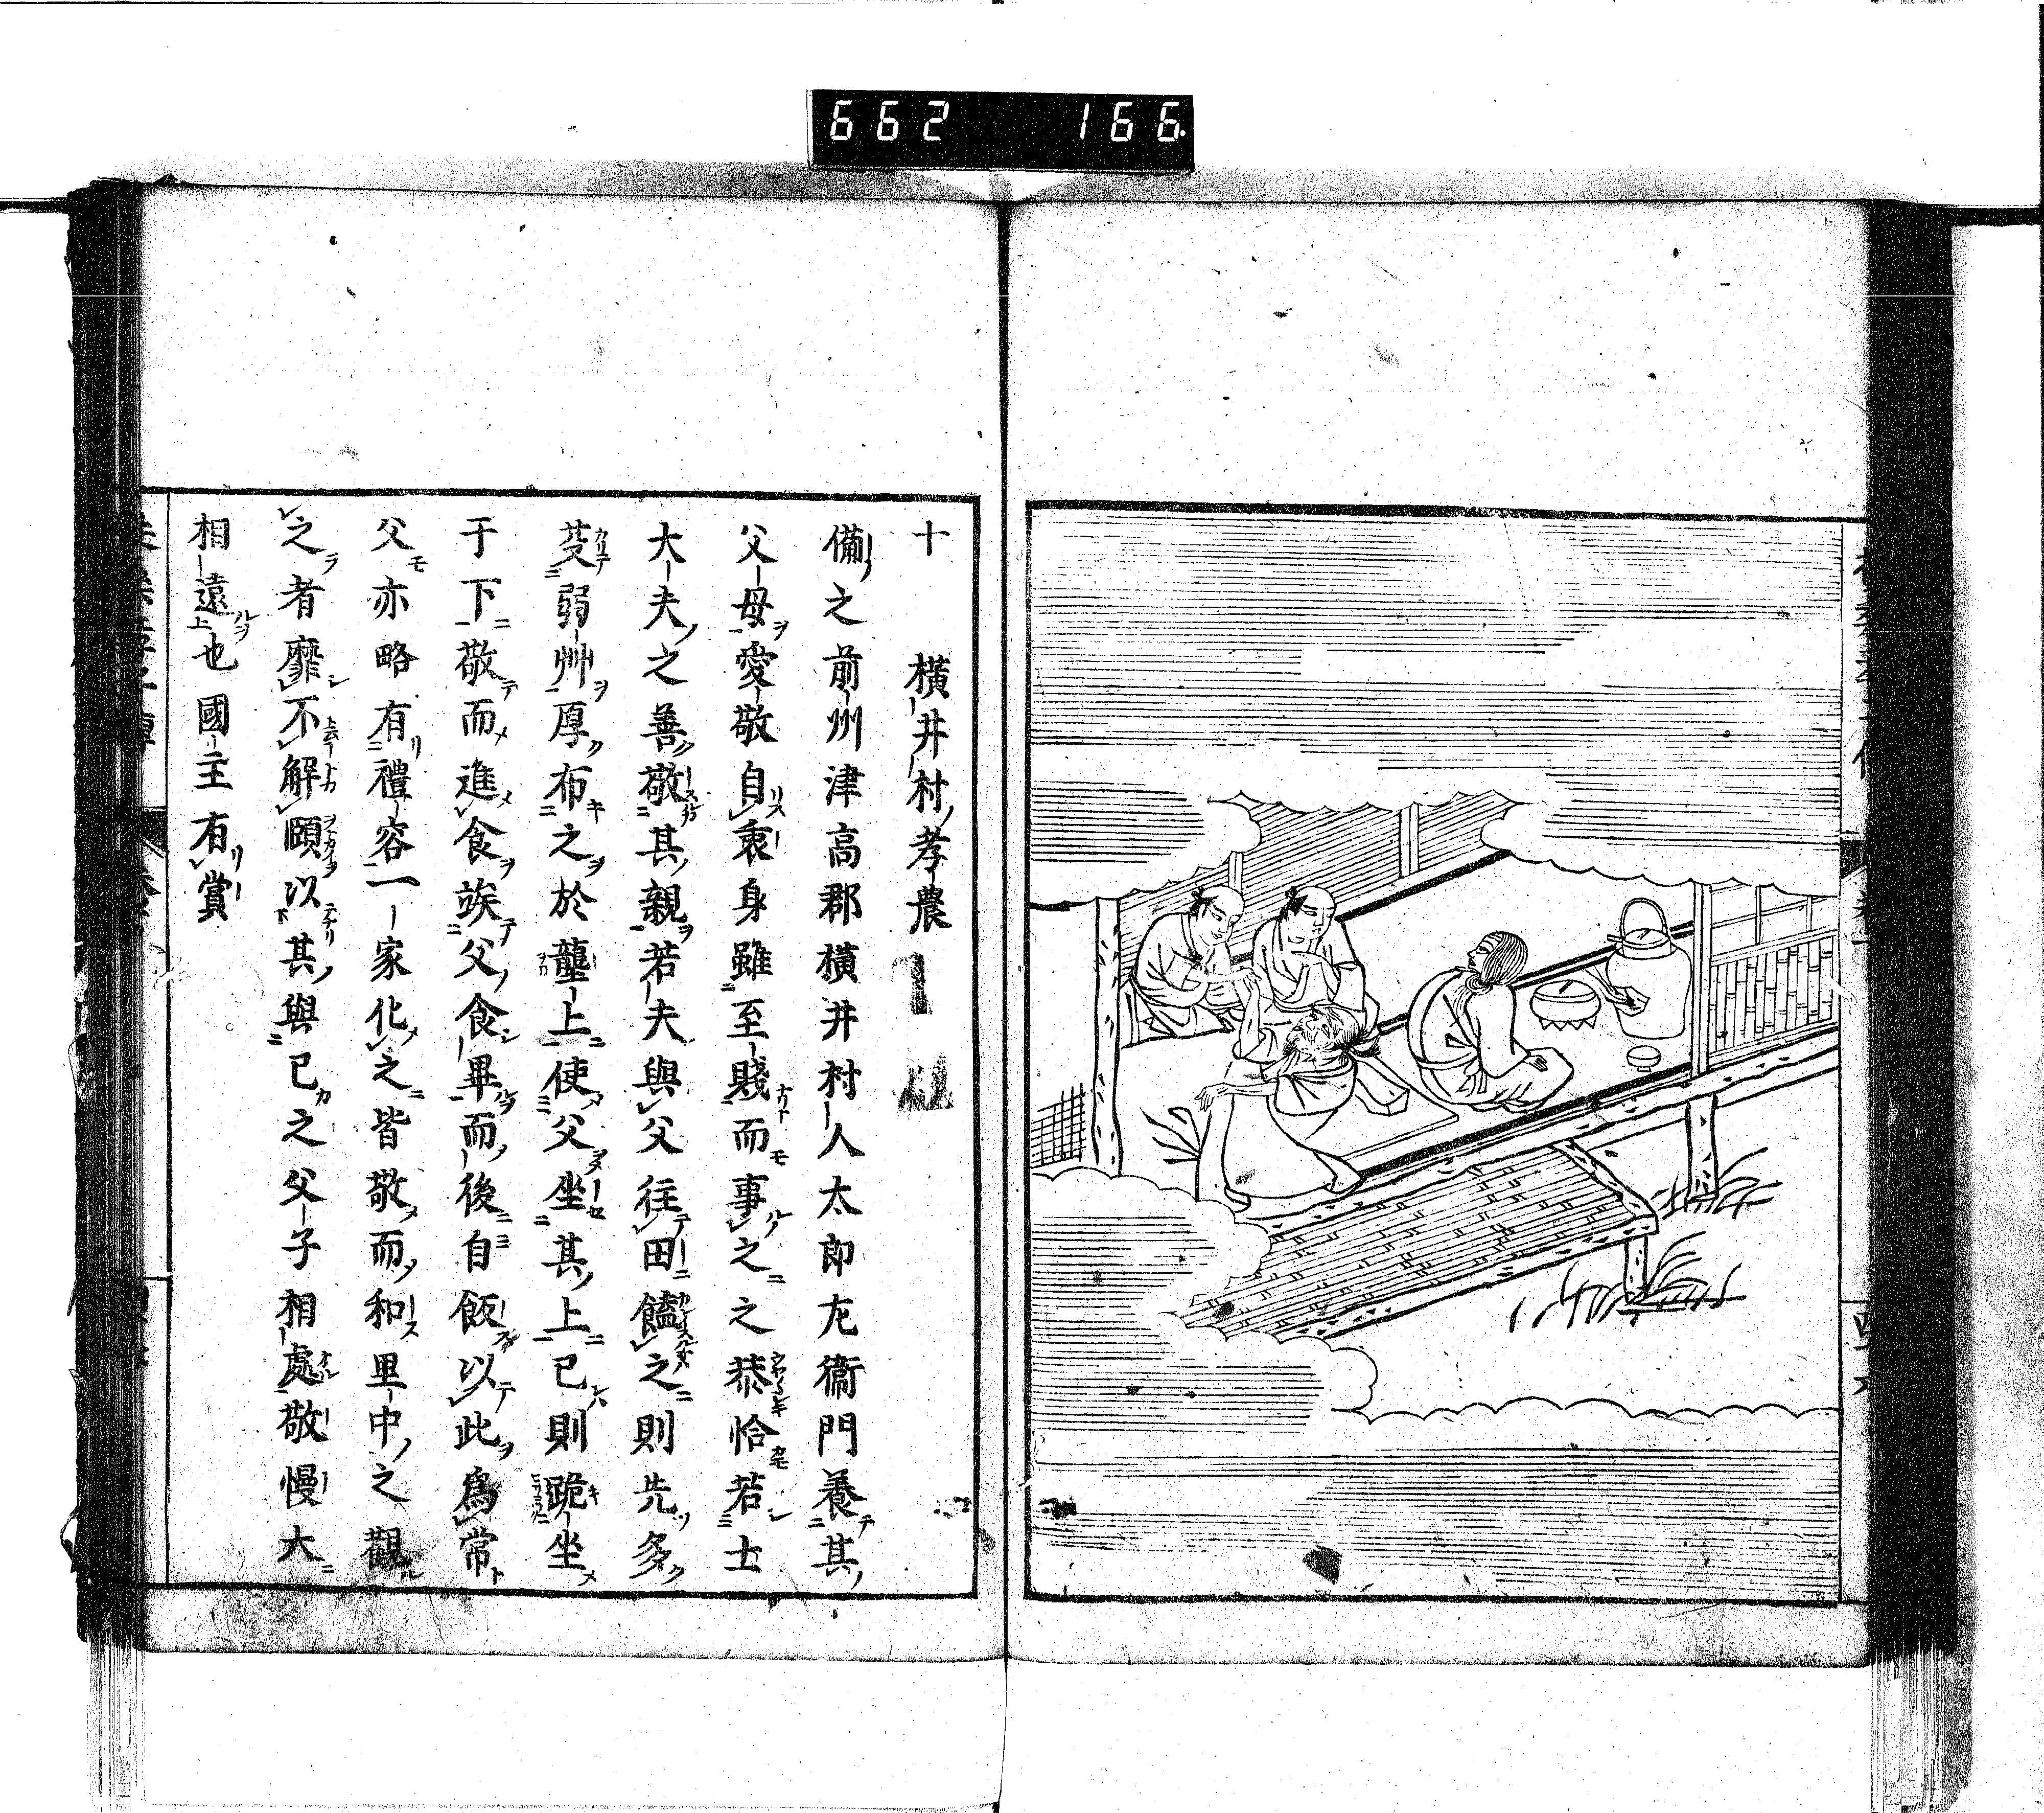 662 166
十 橫井村孝農
備之前州津高郡橫井村人太郎左衞門養其
父母愛敬自衷身雖至賤而事之之恭恰若士
大夫之善敬其親若夫與父往田饁之則先多
芟弱艸厚布之於壟上使父坐其上已則跪坐
于下敬而進食竢父食畢而後自飯以此爲常
父亦略有禮容一家化之皆敬而和里中之觀
之者靡不解頤以其與已之父子相處敬慢大
相遠也國主有賞